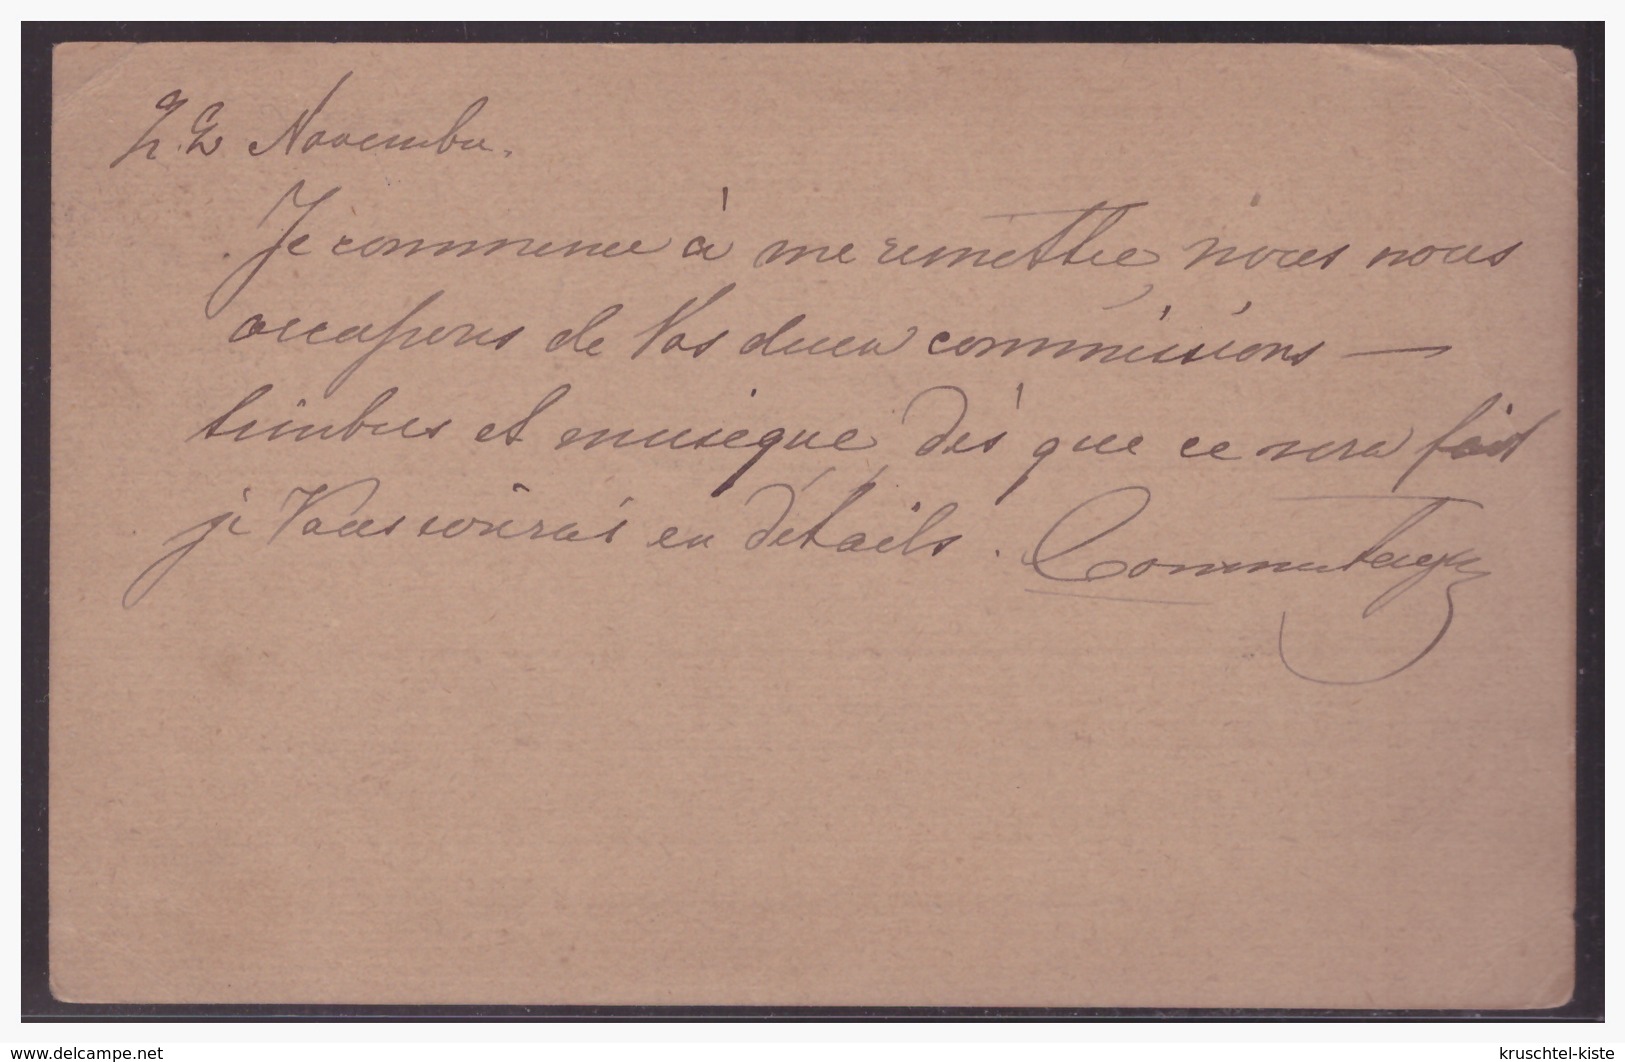 22 Novembre.
Je commence à me remettre, nous nous
occupons de Vos deux commissions —
timbres et musique, dès que ce sera fait
je Vous écrirai en détails.
www.delcampe.net
kruschtel-kiste